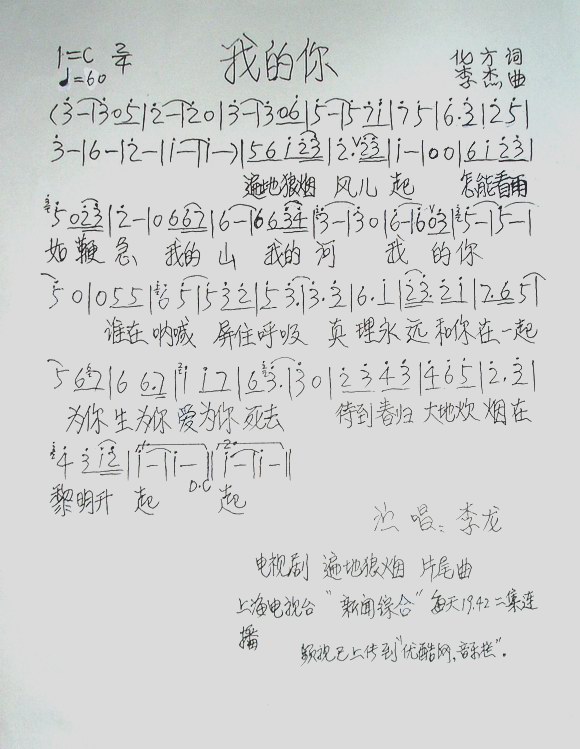 1=C 2/4
♩=60
我的你
化方 词
李杰 曲
(3-|305|2-|20|3-|306|5-|571|75|6·3|25|
3-|6-|2-|1-|1-)|56123|2·23|1-|00|6123|
遍地狼烟 风儿 起 怎能看雨
5023|2-|0667|6-|6634|3-|30|6-|603|5-|5-|
如鞭急 我的 山 我的 河 我 的你
50|055|65|532|53·|3·3|6·1|23·21|7·65|
谁在呐喊 屏住呼吸 真理永远和你在一起
567|66·7|117|63·|30|2343|465|2·3|
为你生为你爱为你死去 待到春归 大地炊烟在
4312|1-|1-||1-|1-||
D.C
黎明升 起 起
演唱:李龙
电视剧 遍地狼烟 片尾曲
上海电视台"新闻综合"每天19.42二集连
播
视已上传到"优酷网,音乐栏".